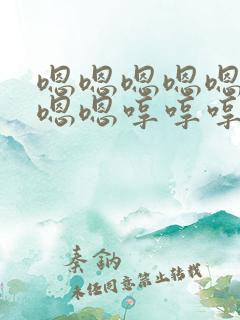 嗯嗯嗯嗯嗯
嗯嗯哼哼哼
秦鈉
未经同意禁止转载